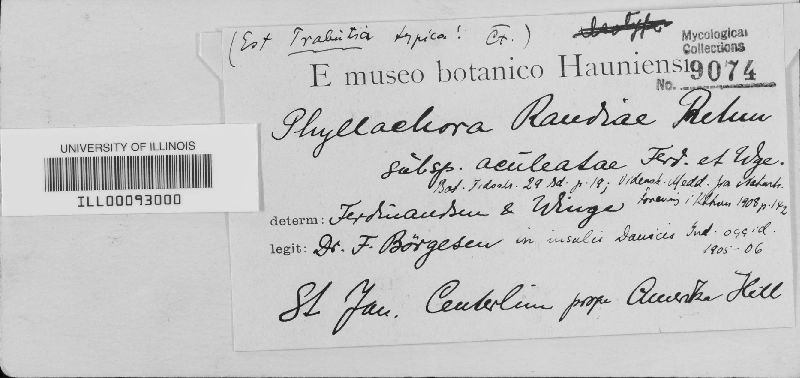 (Est Trabutia typica! Ct.)
Isotype
Mycological
Collections
No. 9074
E museo botanico Hauniensi
Phyllachora Randiae Rehm
subsp. aculeatae Ferd. et Wge.
Bot. Tidsskr. 29 Bd. p. 19; Vidensk. Medd. fra Naturh.
Forening i Kbhvn 1908 p. 142
determ: Ferdinandsen & Winge
legit: Dr. F. Börgesen in insulis Danicis Ind. occid.
1905-06
St Jan. Centerlim prope Amerika Hill
UNIVERSITY OF ILLINOIS
ILL00093000